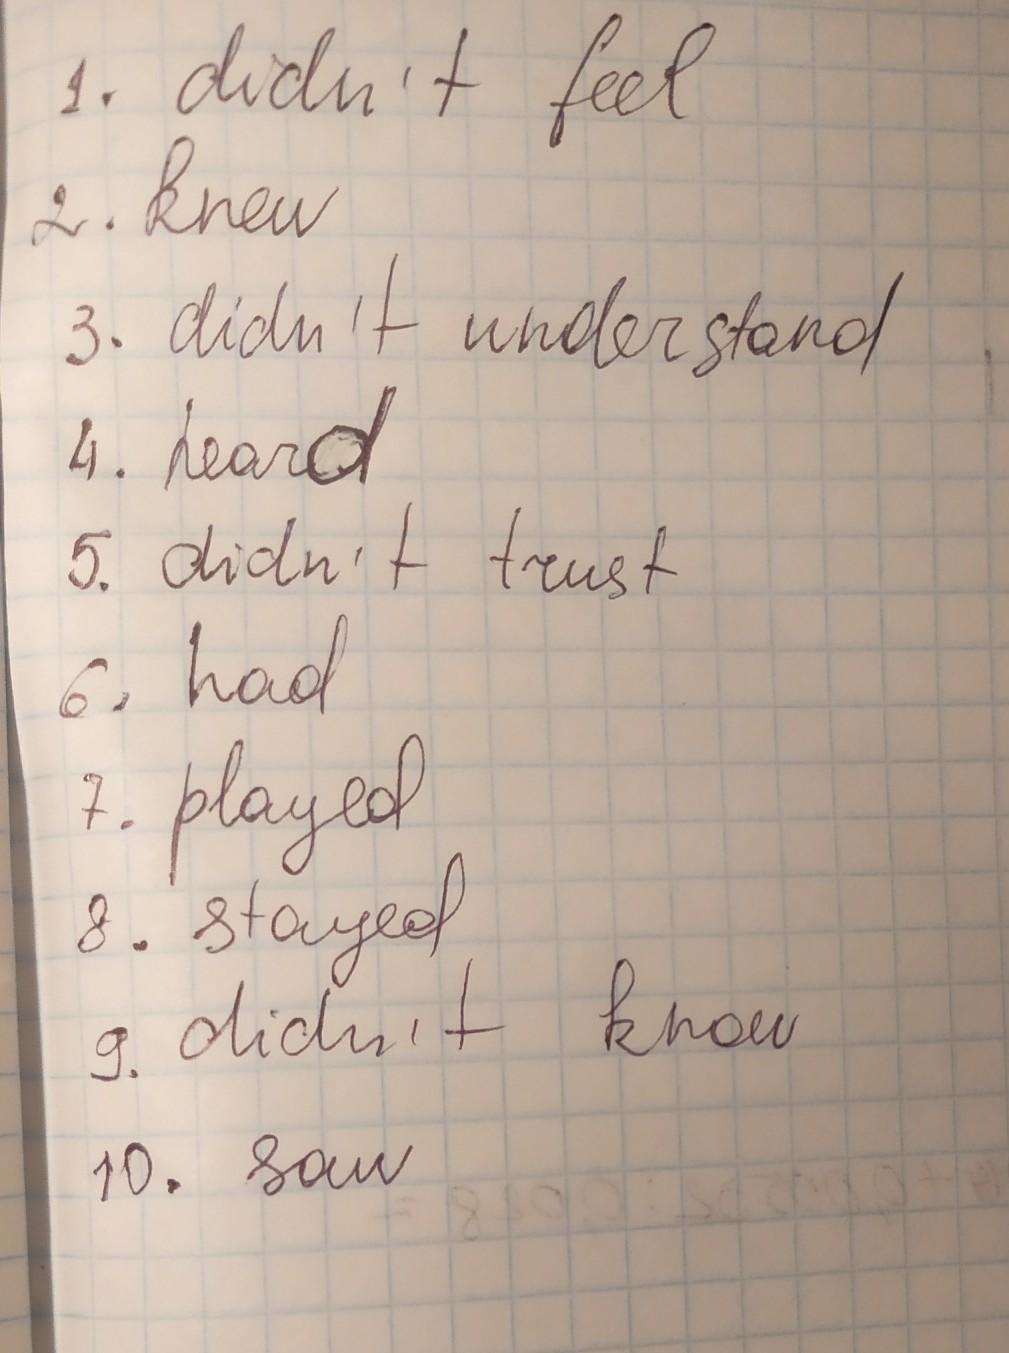 1. didn't feel
2. knew
3. didn't understand
4. heard
5. didn't trust
6. had
7. played
8. stayed
9. didn't know
10. saw